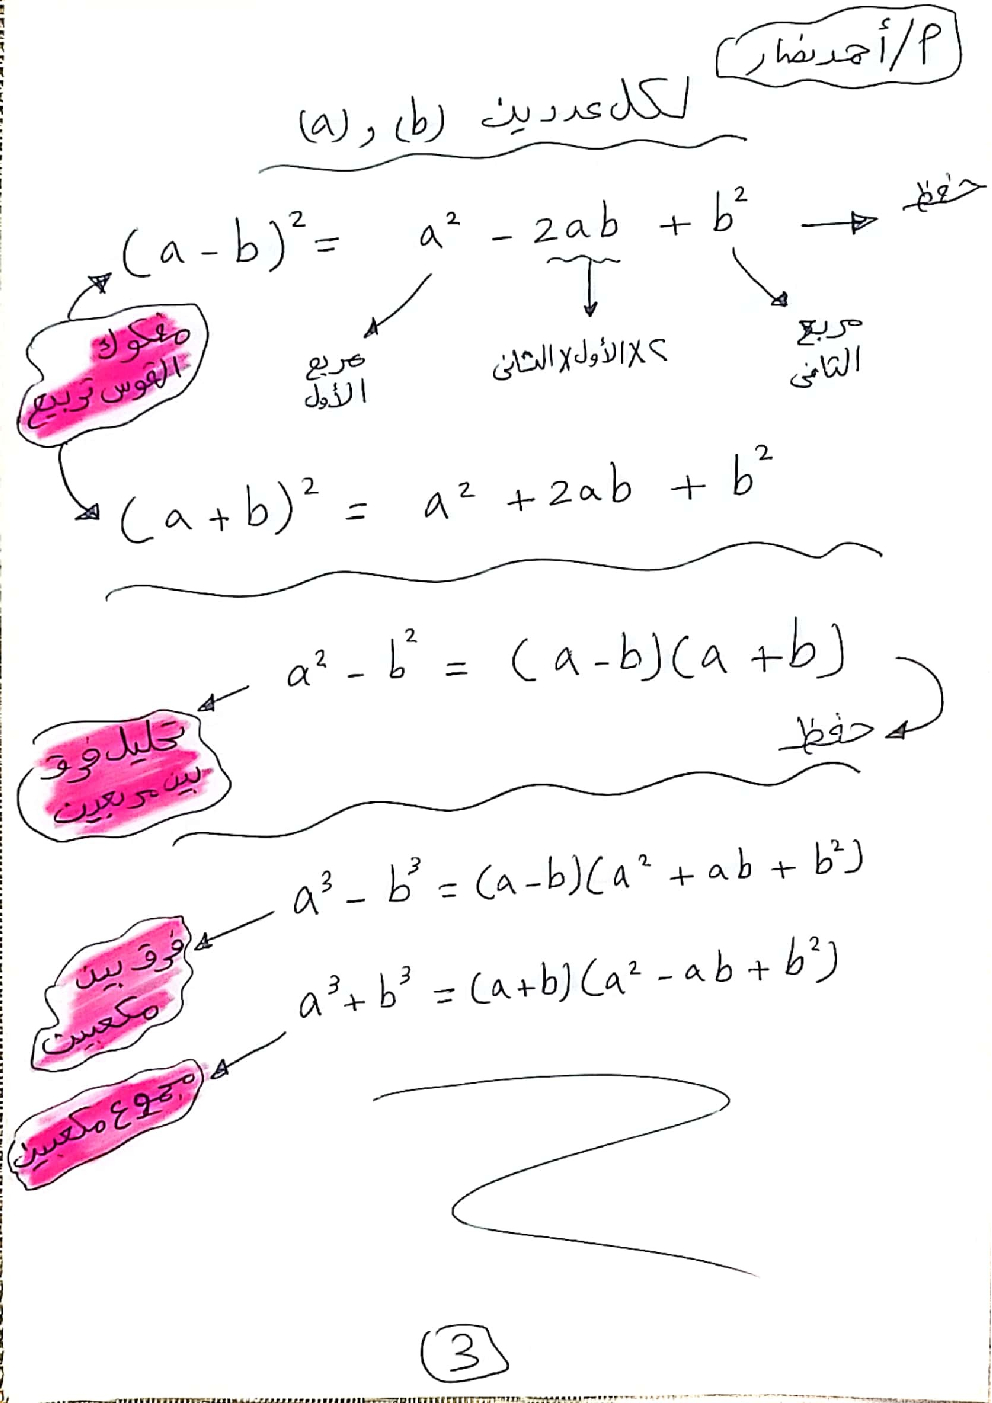 م/أحمد نصار
لكل عددين (b) و (a)
(a-b)² = a² - 2ab + b² → حفظ
مفكوك
القوس تربيع
مربع
الأول
٢×الأول×الثانى
مربع
الثانى
(a+b)² = a² + 2ab + b²
a² - b² = (a-b)(a+b)
حفظ
تحليل فرق
بين مربعين
a³ - b³ = (a-b)(a² + ab + b²)
فرق بين
مكعبين
a³ + b³ = (a+b)(a² - ab + b²)
مجموع مكعبين
3